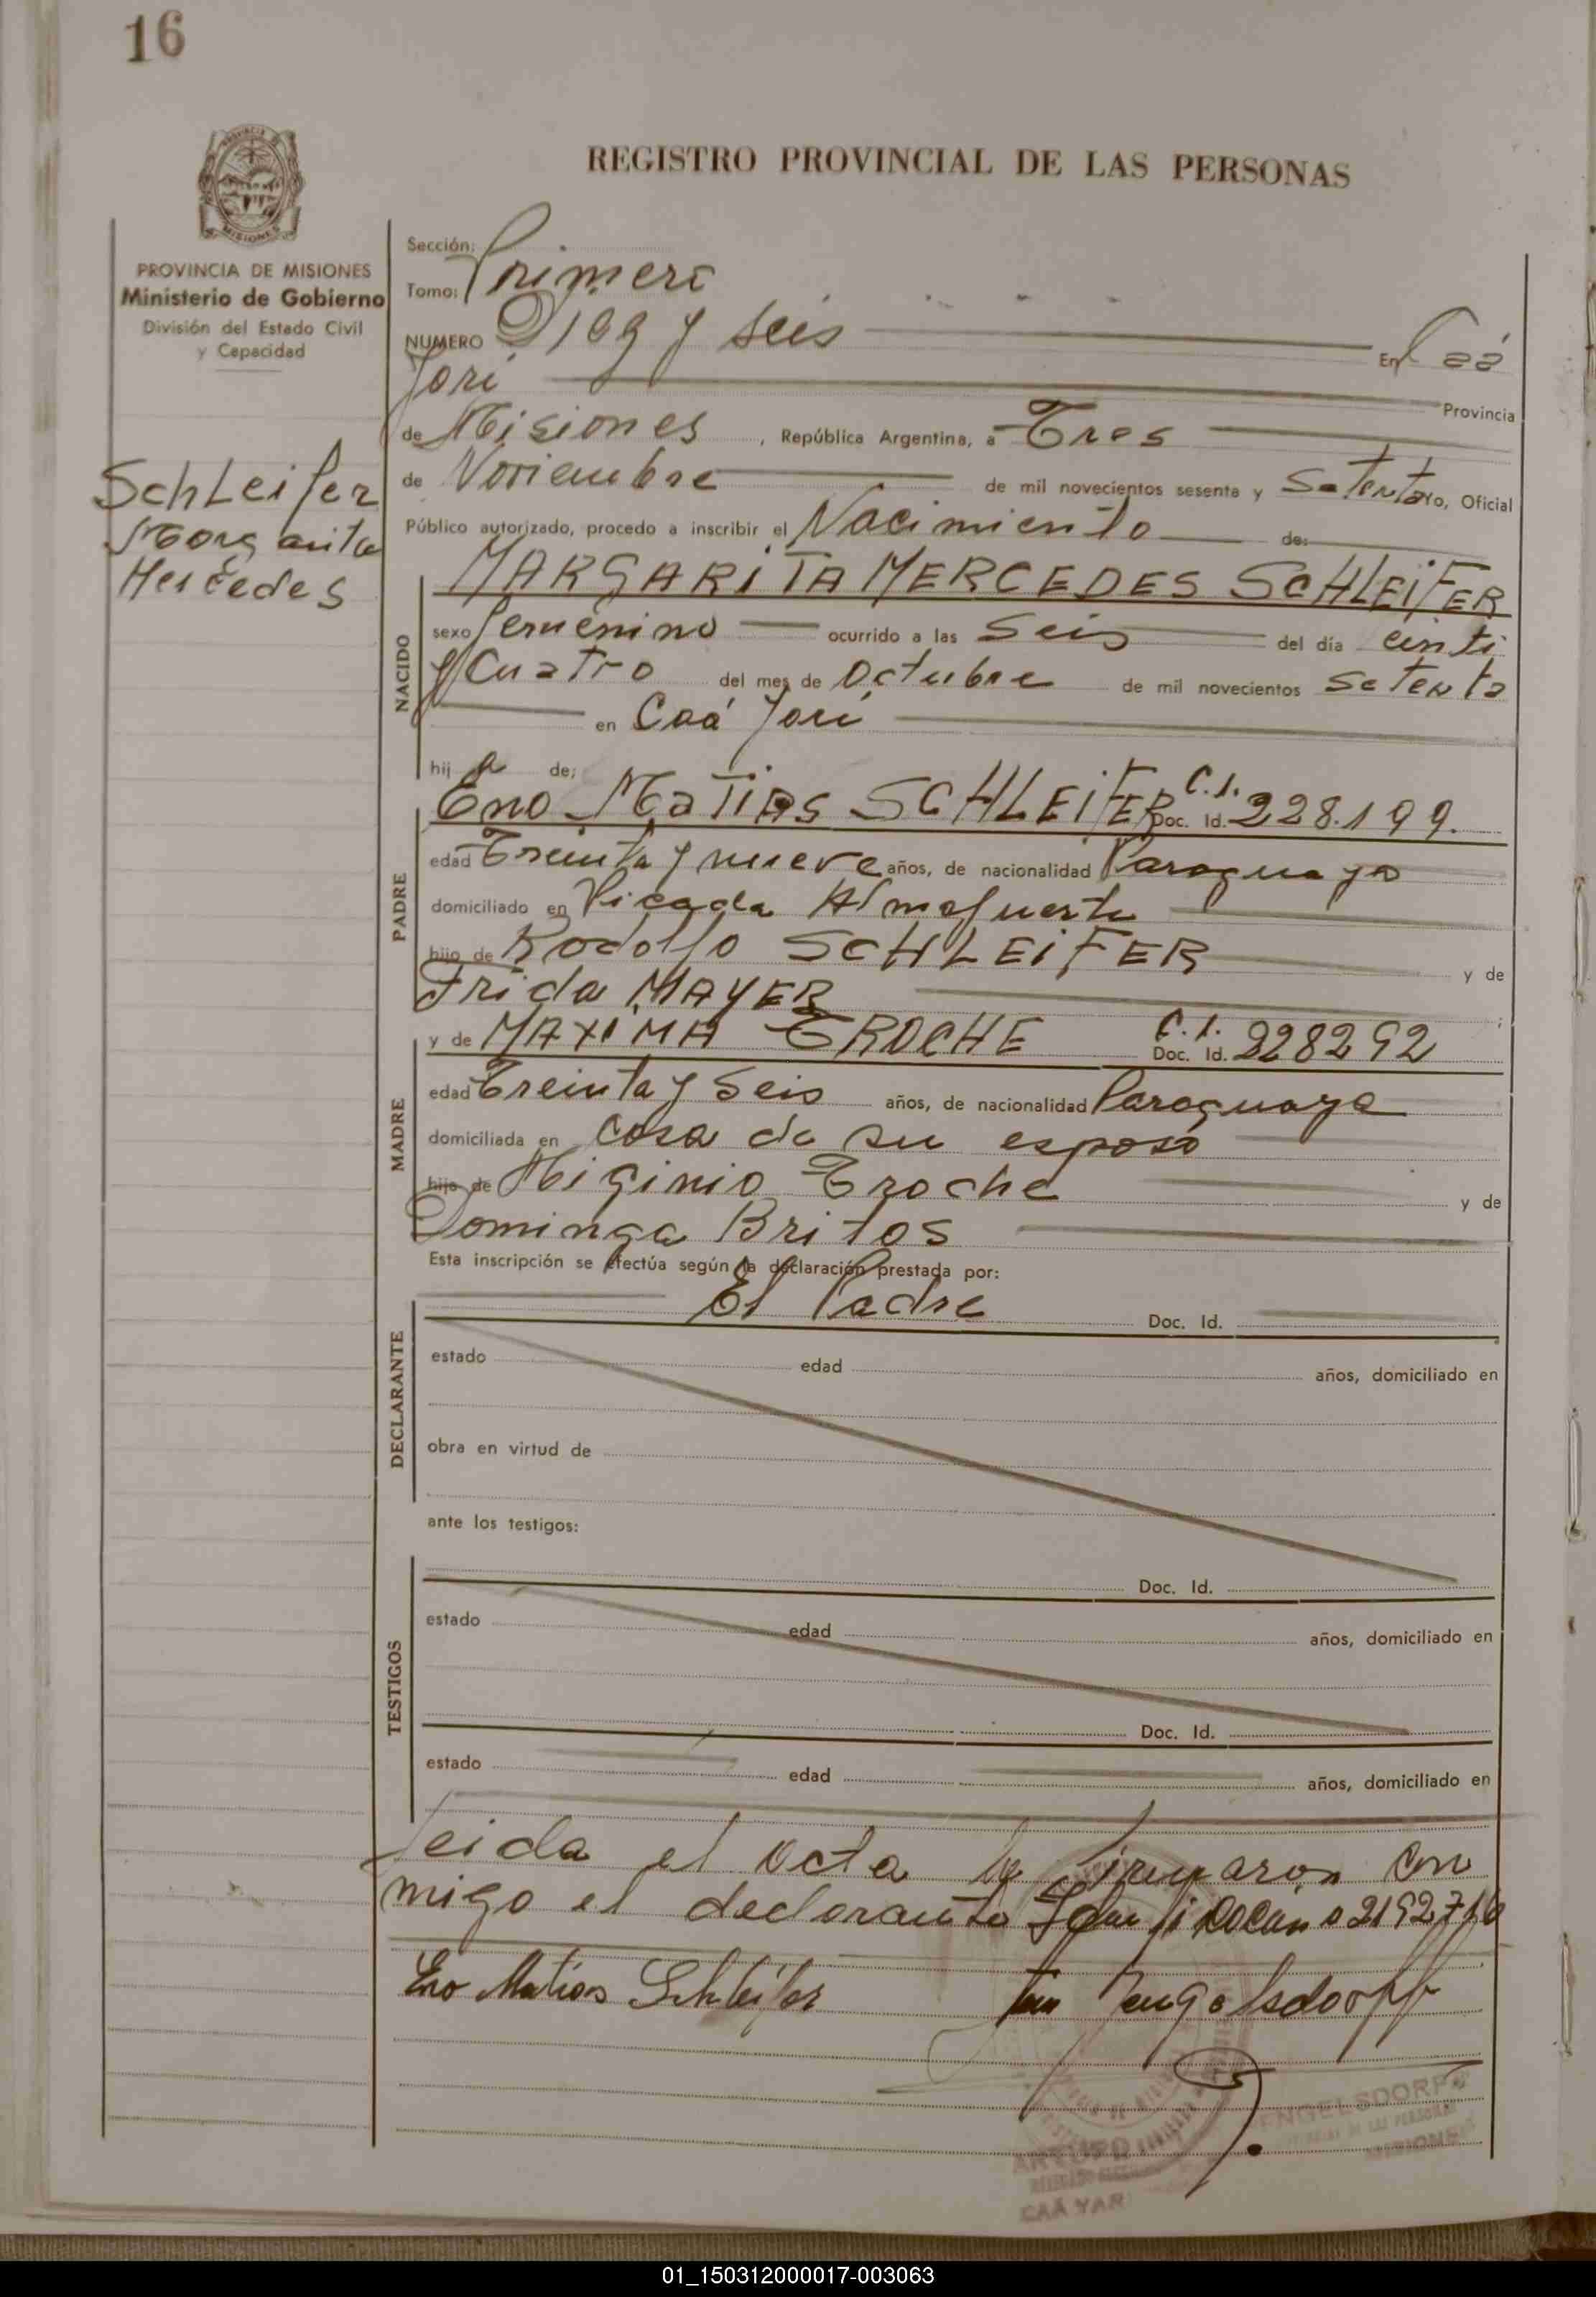 16
REGISTRO PROVINCIAL DE LAS PERSONAS
PROVINCIA DE MISIONES
Ministerio de Gobierno
División del Estado Civil
y Capacidad
Schleifer
Margarita
Mercedes
Sección: Primera
Tomo:
NUMERO Diez y seis En Caá
Yarí Provincia
de Misiones, República Argentina, a Tres
de Noviembre de mil novecientos sesenta y Setenta yo, Oficial
Público autorizado, procedo a inscribir el Nacimiento de:
MARGARITA MERCEDES SCHLEIFER
NACIDO
sexo femenino ocurrido a las Seis del día einti
y Cuatro del mes de Octubre de mil novecientos Setenta
en Caá Yarí
hij a de:
Eno Matias SCHLEIFER C.I. Doc. Id. 228.199.
PADRE
edad Treinta y nueve años, de nacionalidad Paraguayo
domiciliado en Picada Almafuerte
hijo de Rodolfo SCHLEIFER y de
Frida MAYER
y de MAXIMA TROCHE C.I. Doc. Id. 228292
MADRE
edad Treinta y Seis años, de nacionalidad Paraguaya
domiciliada en casa de su esposo
hija de Higinio Troche y de
Dominga Britos
Esta inscripción se efectúa según la declaración prestada por:
El Padre Doc. Id.
DECLARANTE
estado edad años, domiciliado en
obra en virtud de
ante los testigos:
Doc. Id.
TESTIGOS
estado edad años, domiciliado en
Doc. Id.
estado edad años, domiciliado en
Leida el acta la firmaron con
migo el declarante 2192716
Eno Matias Schleifer Engelsdorff
ENGELSDORFF
ARTURO
CAÁ YARI
01_150312000017-003063